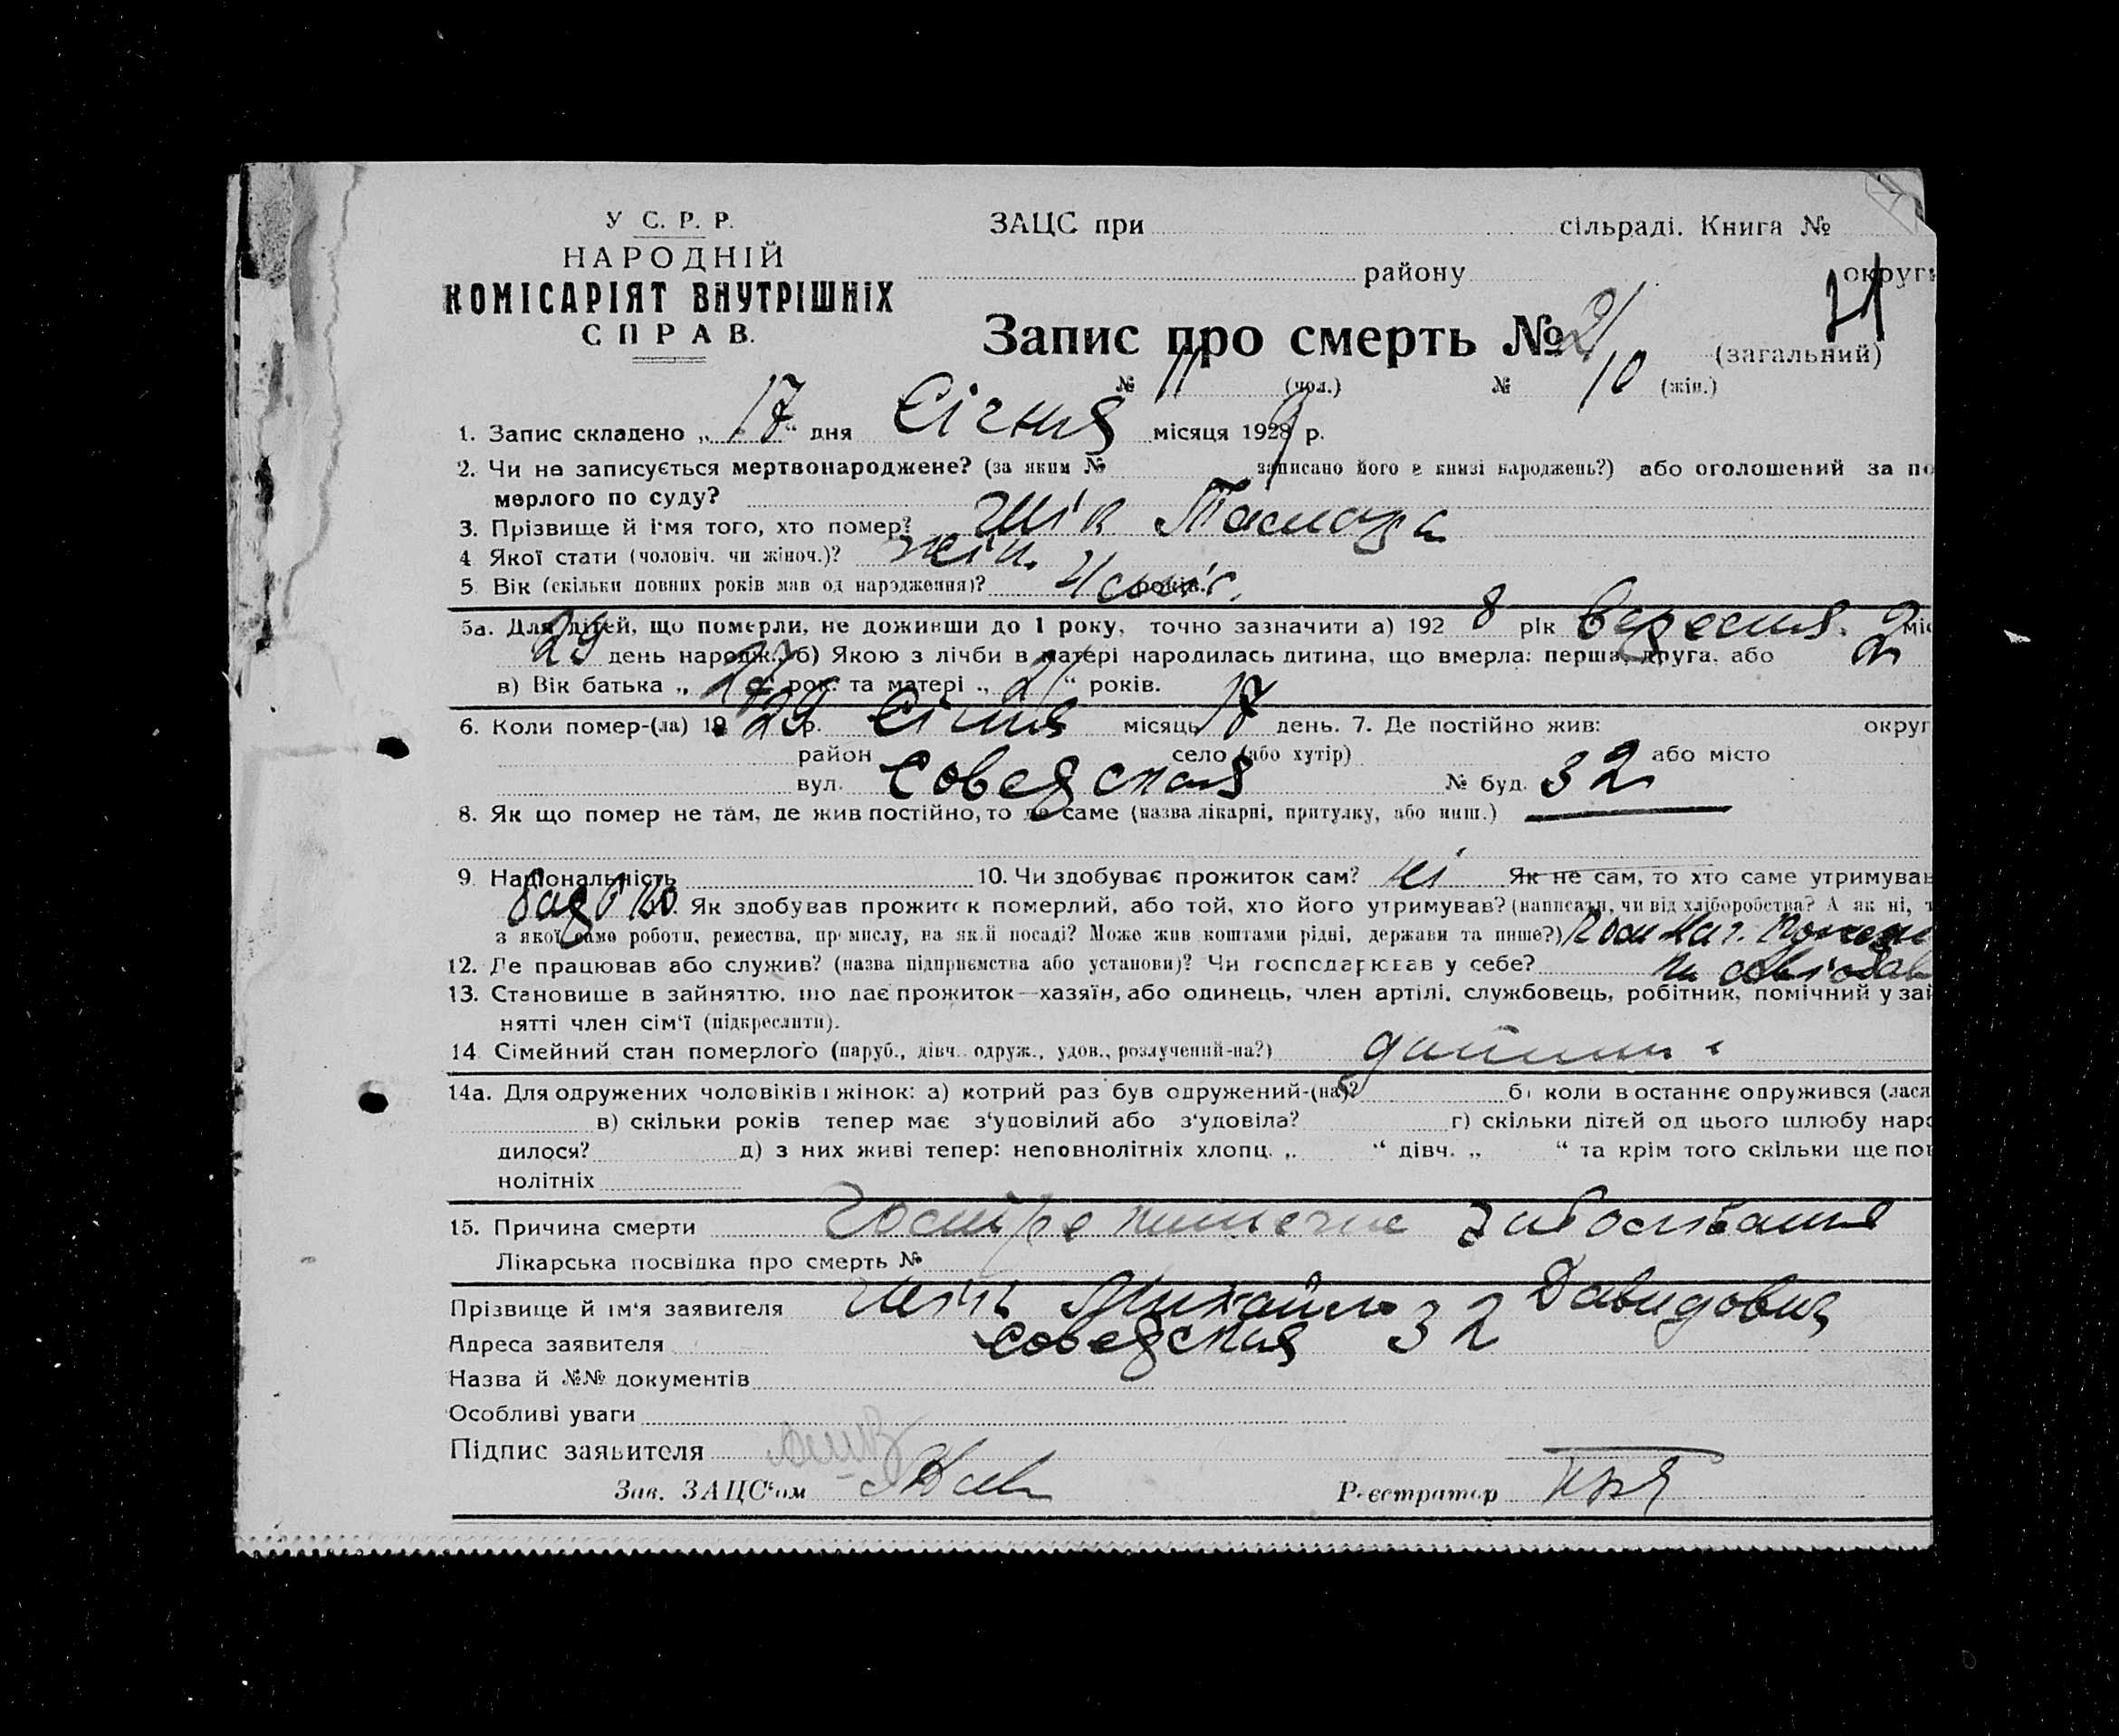 У С. Р. Р.
НАРОДНІЙ
КОМІСАРІЯТ ВНУТРІШНІХ
СПРАВ.
ЗАЦС при сільраді. Книга №
району округи
21
Запис про смерть № 21 (загальний)
№ 11 (чол.) № 10 (жін.)
1. Запис складено „ 17 “ дня Січня місяця 1929 р.
2. Чи не записується мертвонароджене? (за яким № записано його в книзі народжень?) або оголошений за по
мерлого по суду?
3. Прізвище й ім'я того, хто помер? Шік Тамара
4 Якої стати (чоловіч. чи жіноч.)? жін.
5. Вік (скільки повних років мав од народження)? 4 міс. років.
5а. Для дітей, що померли, не доживши до 1 року, точно зазначити а) 192 8 рік Вересня. міс
29 день народж. б) Якою з лічби в матері народилась дитина, що вмерла: перша, друга, або 2
в) Вік батька „ рок. та матері „ “ років.
6. Коли помер-(ла) 1929 р. Січня місяць 17 день. 7. Де постійно жив: округ
район село (або хутір) або місто
вул. Советская № буд. 32
8. Як що помер не там, де жив постійно, то де саме (назва лікарні, притулку, або инш.)
9. Національність 10. Чи здобуває прожиток сам? ні Як не сам, то хто саме утримував
батько. Як здобував прожиток померлий, або той, хто його утримував? (написати, чи від хліборобства? А як ні, т
з якої саме роботи, ремества, промислу, на якій посаді? Може жив коштами рідні, держави та инше?)
12. Де працював або служив? (назва підприємства або установи)? Чи господарював у себе?
13. Становище в зайняттю, що дає прожиток—хазяїн, або одинець, член артілі, службовець, робітник, помічний у зай
нятті член сім'ї (підкреслити).
14. Сімейний стан померлого (паруб., дівч. одруж., удов., розлучений-на?)
14а. Для одружених чоловіків і жінок: а) котрий раз був одружений-(на)? б) коли востаннє одружився (лася
в) скільки років тепер має з'удовілий або з'удовіла? г) скільки дітей од цього шлюбу наро
дилося? д) з них живі тепер: неповнолітніх хлопц. „ “ дівч. „ “ та крім того скільки ще пов
нолітніх
15. Причина смерти Гостре кишечне заболівання
Лікарська посвідка про смерть №
Прізвище й ім'я заявителя Шік Михайло Давидович
Адреса заявителя Советская 32
Назва й №№ документів
Особливі уваги
Підпис заявителя
Зав. ЗАЦС'ом Реєстратор